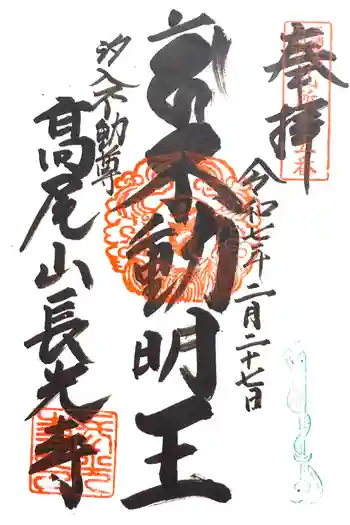 奉拝
令和七年二月二十七日
不動明王
汐入不動尊
髙尾山長光寺